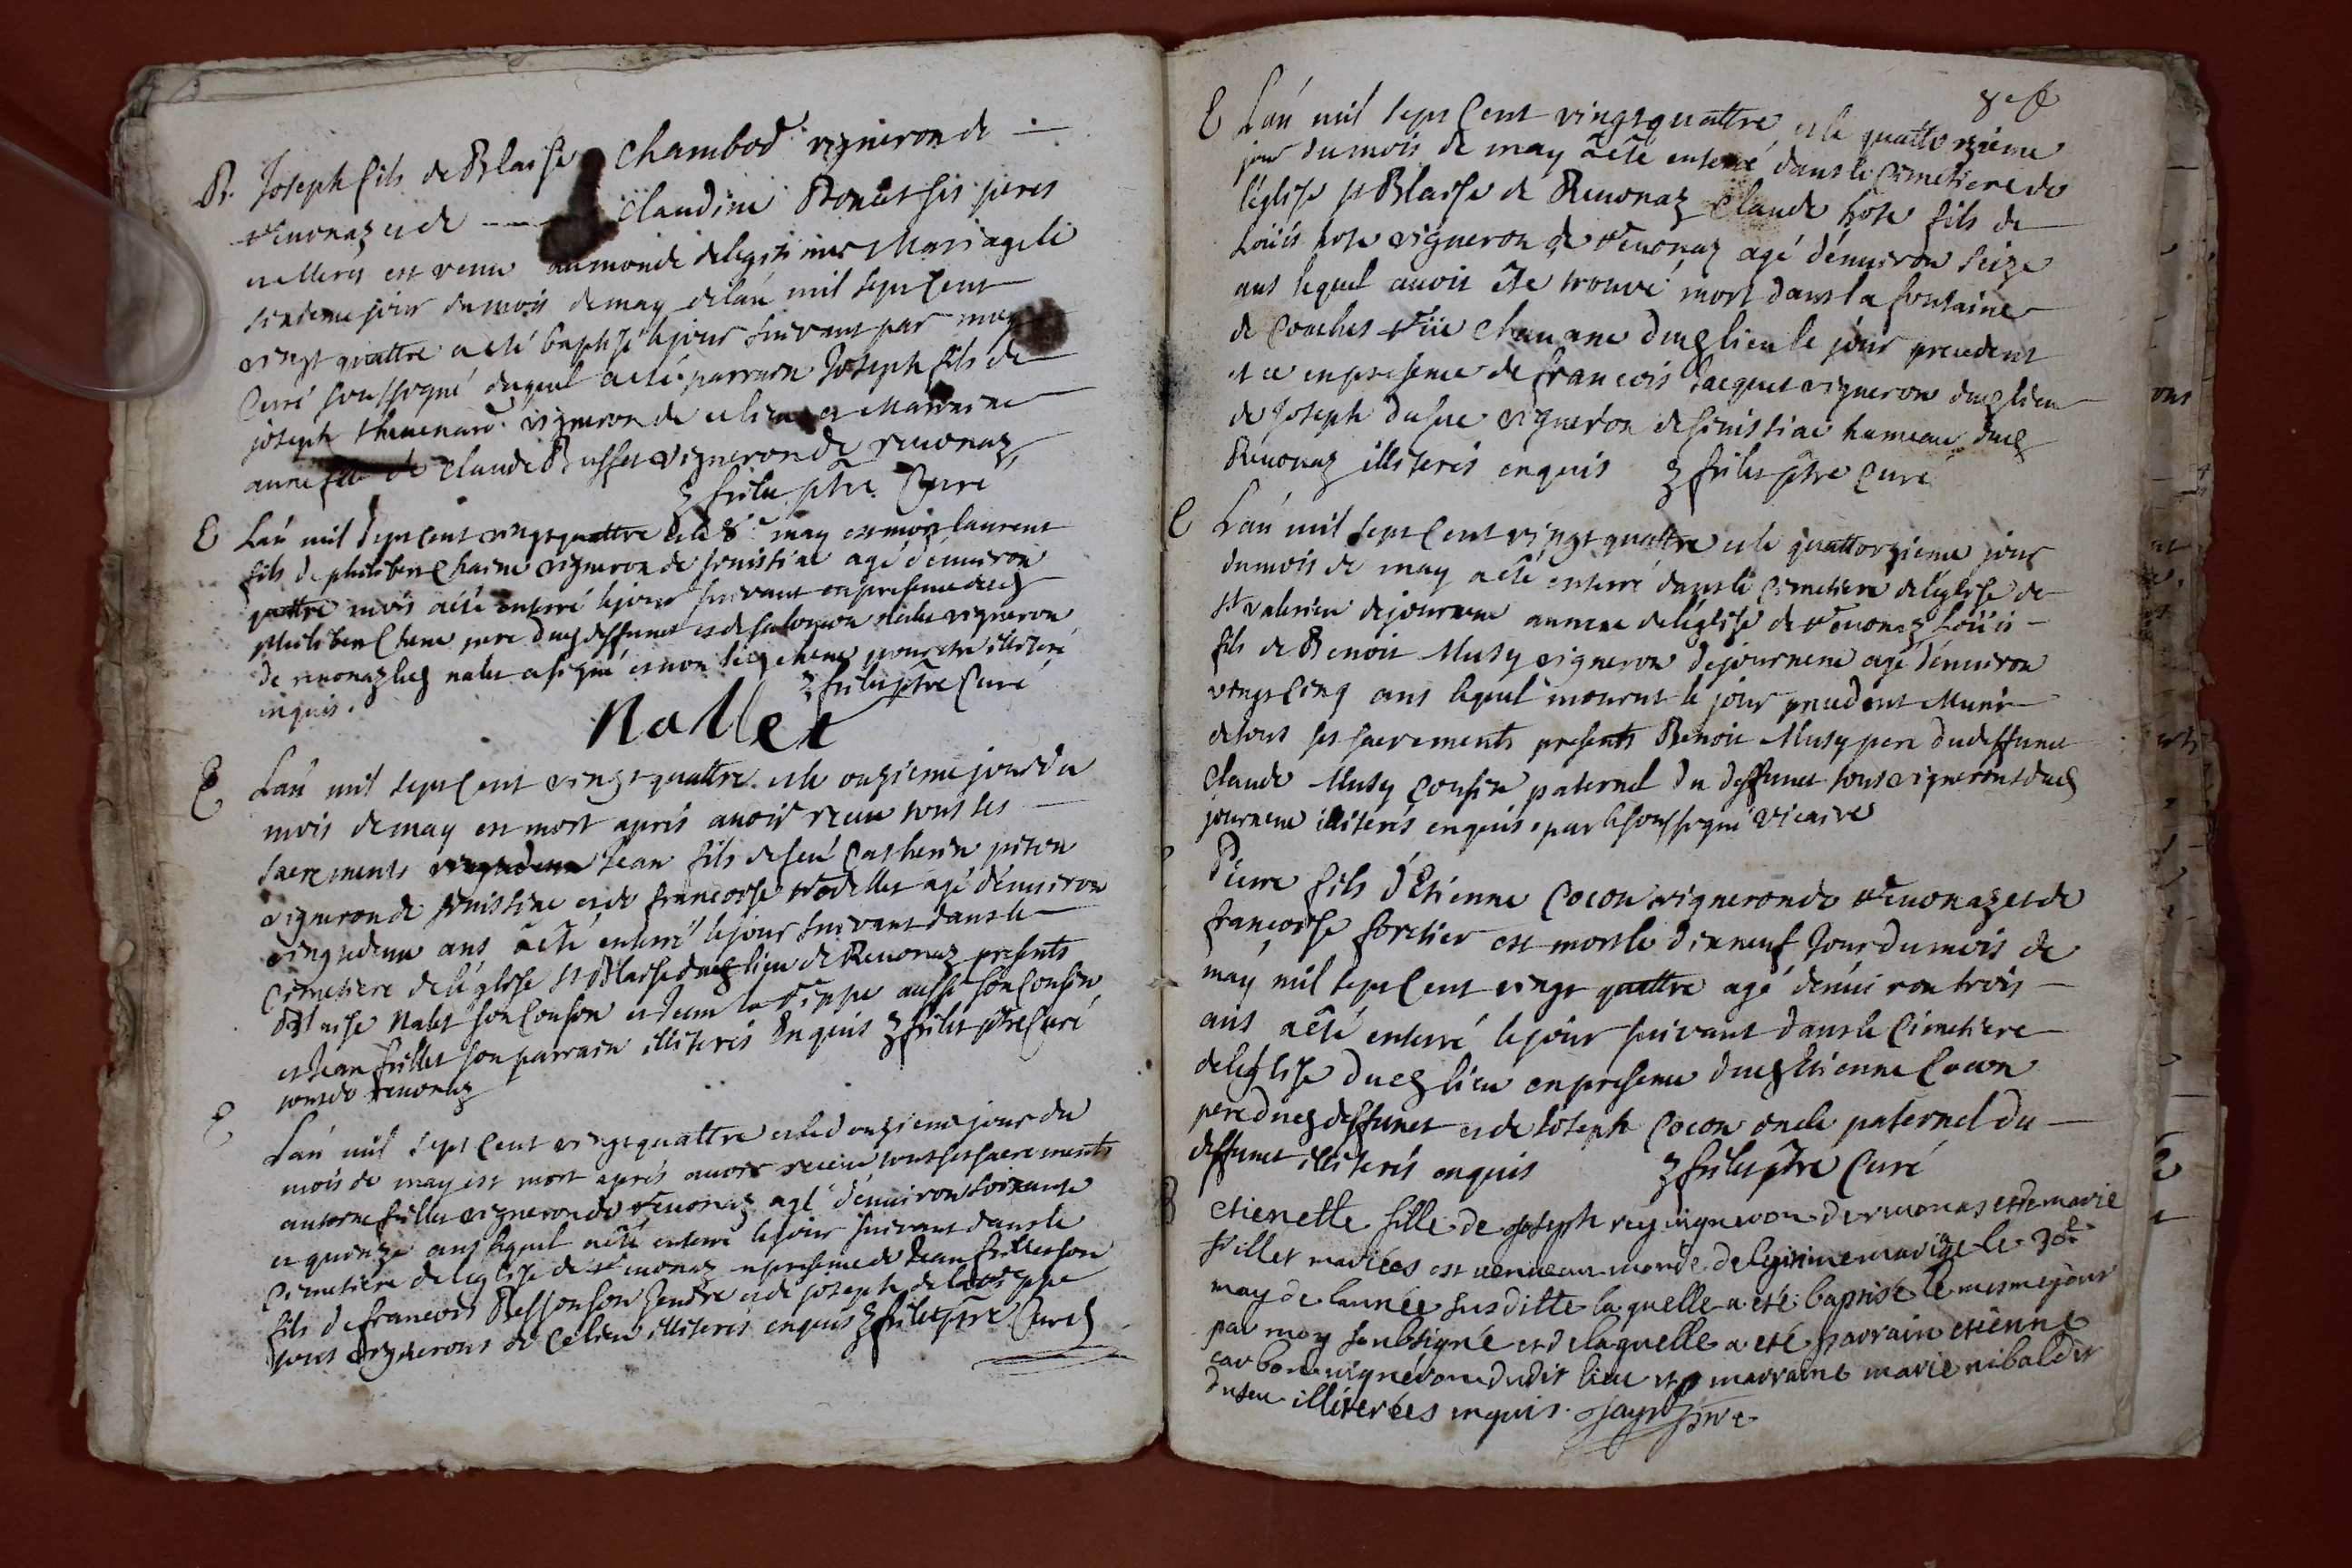 B. Joseph fils de Blaise Chambod vigneron de
Reuonaz et de Claudine Bonet ses peres
et meres est venu au monde de legitime Mariage le
sixieme jour du mois de may de lan mil sept cent
vingt quattre a eté baptisé le jour suivant par moy
Curé soussigné duquel a eté parrain Joseph fils de
joseph Theuenard vigneron de ce lieu et Marraine
anne fille de Claude Buffet vigneron de reuonaz
frilet ptre Curé
E Lan mil sept cent vingt quattre et le 8e may est mort laurent
fils de philibert Chaine vigneron de senissiat agé denuiron
quattre mois a eté enterré le jour suivant en presence dud
philibert Chene pere dud deffunct et de salomon nalet vigneron
de reuonaz led nalet a signé et non led chene pour etre illiteré
inquis. frilet ptre Curé
Nallet
E Lan mil sept cent vingt quattre et le onzieme jour du
mois de may est mort aprés auoir receu tous les
sacrements Jean fils de feu Catherin piton
vigneron de senissiat et de francoise rodillet agé denuiron
vingt deux ans a eté enterré le jour suivant dans le
Cimetiere de léglise st Blaise dud lieu de Reuonaz presents
Blaise Nalet son Cousin et Jean la Vippe aussi son Cousin
et Jean frillet son parrain illiterés Enquis frilet ptre Curé
tous de reuonaz
E Lan mil sept cent vingt quattre et le douzieme jour du
mois de may est mort aprés auoir receu tous ses sacrements
antoine frillet vigneron de Reuonaz agé denuiron soixante
et quinze ans lequel a eté enterré le jour suivant dans le
Cimetiere de leglise de Reuonaz en presence de Jean frillet son
fils de francois Besson son Gendre et de joseph de la Vippe
tous vignerons de ce lieu illiterés enquis frilet ptre Curé
E Lan mil sept cent vingt quattre et le quattorzieme
jour du mois de may a eté enterré dans le Cimetiere de
léglise st Blaise de Reuonaz Claude hote fils de
Loüis hote vigneron de Reuonaz agé denuiron seize
ans lequel auoit ete trouvé mort dans la fontaine
de Conches dud lieu le jour precedent
et ce en presence de francois Jacquet vigneron dud lieu
de Joseph dufue vigneron de senissiat hameau dud
Reuonaz illiterés enquis frilet ptre Curé
E Lan mil sept Cent vingt quattre et le quattorzieme jour
du mois de may a eté enterré dans le Cimetiere de léglise de
st valerien de journans annexe de léglise de Reuonaz Loüis
fils de Benoit Musy vigneron de journans agé denuiron
vingt Cinq ans lequel mourut le jour precedent Muni
de tous ses sacrements presents Benoit Musy pere du deffunct
Claude Musy Cousin paternel du deffunct tous vignerons dud
journans illiterés enquis par le soussigné Vicaire
Pierre fils d'Etienne Cocon vigneron de Reuonaz et de
francoise forestier est mort le dixneuf Jour du mois de
may mil sept Cent vingt quattre agé denuiron trois
ans a eté enterré le jour suivant dans le Cimetiere
de leglise dud lieu en presence dud Etienne Cocon
pere dud deffunct et de Joseph Cocon oncle paternel du
deffunct illiterés enquis frilet ptre Curé
B etienette fille de Joseph rey uigneron de reuonas et de marie
frillet mariées est uenue au monde de legitime mariage le 30e
may de lannée susditte laquelle a eté baptisé le mesme jour
par moy soubsigné et de laquelle a eté parrain etienne
carbon uigneron dudit lieu et marraine marie nibal dit
duseu illiterées inquis. Jayr ptre